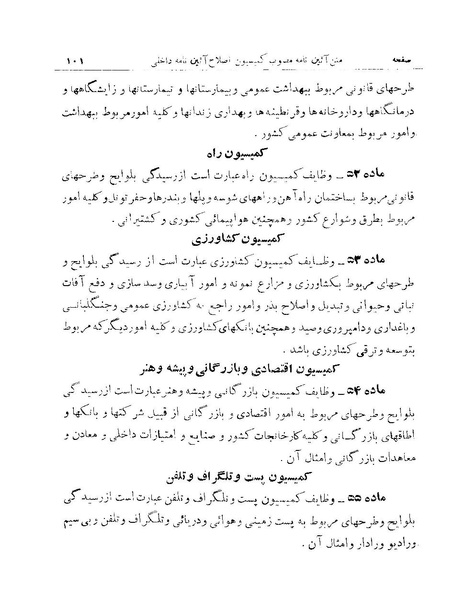 صفحه متن آئین نامه مصوب کمیسیون اصلاح آئین نامه داخلی ۱۰۱
طرحهای قانونی مربوط ببهداشت عمومی وبیمارستانها و تیمارستانها و زایشگاهها و
درمانگاهها وداروخانه‌ها وقرنطینه‌ها وبهداری زندانها وکلیه امورمربوط ببهداشت
وامور مربوط بمعاونت عمومی کشور .
کمیسیون راه
ماده ۵۲ ــ وظایف کمیسیون راه عبارت است ازرسیدگی بلوایح وطرحهای
قانونی مربوط بساختمان راه آهن وراههای شوسه وپلها وبندرها وحفرتونل وکلیه امور
مربوط بطرق وشوارع کشور وهمچنین هواپیمائی کشوری و کشتیرانی .
کمیسیون کشاورزی
ماده ۵۳ ــ وظایف کمیسیون کشاورزی عبارت است از رسیدگی بلوایح و
طرحهای مربوط بکشاورزی و مزارع نمونه و امور آبیاری وسد سازی و دفع آفات
نباتی وحیوانی وتبدیل واصلاح بذر وامور راجع به کشاورزی عمومی وجنگلبانی
وباغداری ودامپروری وصید وهمچنین بانکهای کشاورزی و کلیه اموردیگر که مربوط
بتوسعه وترقی کشاورزی باشد .
کمیسیون اقتصادی وبازرگانی وپیشه وهنر
ماده ۵۴ ــ وظایف کمیسیون بازرگانی وپیشه وهنر عبارت است ازرسیدگی
بلوایح وطرحهای مربوط به امور اقتصادی و بازرگانی از قبیل شرکتها و بانکها و
اطاقهای بازرگانی وکلیه کارخانجات کشور و صنایع و امتیازات داخلی و معادن و
معاهدات بازرگانی وامثال آن .
کمیسیون پست وتلگراف وتلفن
ماده ۵۵ ــ وظایف کمیسیون پست وتلگراف وتلفن عبارت است ازرسیدگی
بلوایح وطرحهای مربوط به پست زمینی وهوائی ودریائی وتلگراف وتلفن وبی سیم
ورادیو ورادار وامثال آن .